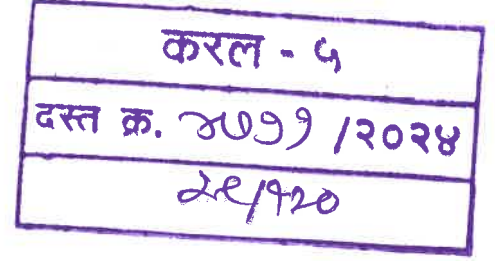 करल - ५
दस्त क्र. ४७११ /२०२४
२९/१२०